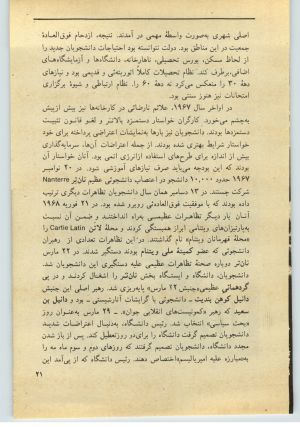 اصلی شهری به‌صورت واسطهٔ مهمی در آمدند. نتیجه، ازدحام فوق‌العادهٔ
جمعیت در این مناطق بود. دولت نتوانسته بود احتیاجات دانشجویان جدید را
از لحاظ مسکن، بورس تحصیلی، ناهارخانه، دانشگاه‌ها و آزمایشگاه‌های
اضافی، برطرف کند. نظام تحصیلات کاملاً اتوریته‌ئی و قدیمی بود و نیازهای
دههٔ ۳۰ را منعکس می‌کرد نه دههٔ ۶۰ را. نظام ارتباطی و شیوهٔ برگزاری
امتحانات نیز هنوز سنتی بود.
در اواخر سال ۱۹۶۷، علائم نارضائی در کارخانه‌ها نیز بیش ازپیش
به‌چشم می‌خورد. کارگران خواستار دستمزد بالاتر و لغو قانون تثبیت
دستمزدها بودند. دانشجویان نیز بارها به‌نمایشات اعتراضی پرداخته برای خود
خواستار شرایط بهتری شده بودند. از جمله اعتراضات آن‌ها، سرمایه‌گذاری
بیش از اندازه برای طرح‌های استفاده ازانرژی اتمی بود. آنان خواستار آن
بودند که این بودجه می‌باید صرف نیازهای آموزشی شود. در ۲۰ نوامبر
۱۹۶۷ حدود ۱۰،۰۰۰ دانشجو در اعتصاب دانشجوئی عظیم نان‌تر Nanterre
شرکت جستند. در ۱۳ دسامبر همان سال دانشجویان تظاهرات دیگری ترتیب
داده بودند که با موفقیت فوق‌العاده‌ئی روبرو شده بود. در ۲۱ فوریه ۱۹۶۸
آنان بار دیگر تظاهرات عظیمی به‌راه انداختند و ضمن آن نسبت
به‌پارتیزان‌های ویتنامی ابراز همبستگی کردند و محلهٔ لاتن Carlie Latin را
«محلهٔ قهرمانان ویتنام» نام گذاشتند. در این تظاهرات تعدادی از رهبران
دانشجوئی که عضو کمیتهٔ ملی ویتنام بودند دستگیر شدند. در ۲۲ مارس
نان‌تر دوباره صحنهٔ تظاهرات عظیمی علیه دستگیری این دانشجویان شد.
دانشجویان، دانشگاه و ایستگاه پخش نان‌تر را اشغال کردند و در پی
گردهمائی عظیمی«جنبش ۲۲ مارس» پایه‌ریزی شد. رهبر اصلی این جنبش
دانیل کوهن بندیت ـ دانشجوئی با گرایشات آنارشیستی ـ بود و دانیل بن
سعید که رهبر «کمونیست‌های انقلابی جوان». ـ ۲۹ مارس به‌عنوان روز
«بحث سیاسی» انتخاب شد. رئیس دانشگاه، به‌دنبال اعتراضات شدید
دانشجویان تصمیم گرفت دانشگاه را برای‌دو روزتعطیل کند. پس از باز شدن
مجدد دانشگاه، دانشجویان تصمیم گرفتند که روزهای دوم و سوم ماه مه را
به‌مبارزه علیه امپریالیسم‌اختصاص دهند. رئیس دانشگاه که از پی‌آمد این
۲۱